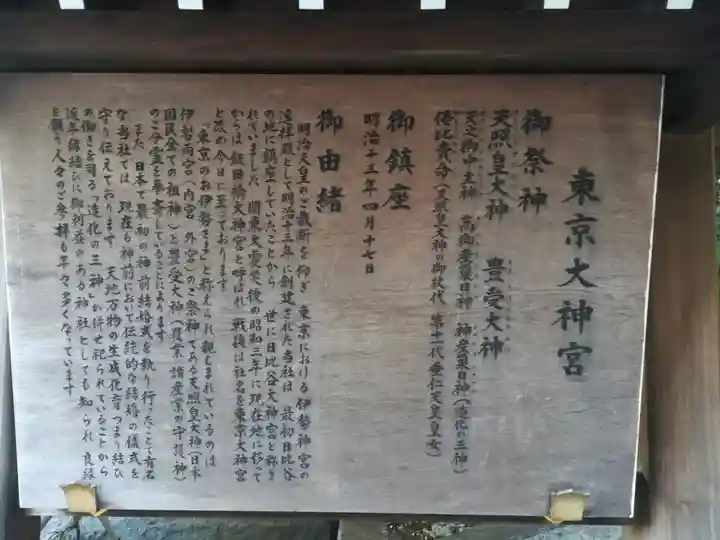 東京大神宮
御祭神
天照皇大神 豊受大神
天之御中主神 高御産巣日神 神産巣日神(造化の三神)
倭比賣命(天照皇大神の御杖代 第十一代垂仁天皇皇女)
御鎮座
明治十三年四月十七日
御由緒
明治天皇のご裁断を仰ぎ 東京における伊勢神宮の
遥拝殿として明治十三年に創建された当社は 最初日比谷
の地に鎮座していたことから 世に日比谷大神宮と称さ
れていました 関東大震災後の昭和三年に現在地に移って
からは飯田橋大神宮と呼ばれ 戦後は社名を東京大神宮
と改め今日に至っております
「東京のお伊勢さま」と称えられ親しまれているのは
伊勢両宮(内宮 外宮)のご祭神である天照皇大神(日本
国民全ての祖神)と豊受大神(農業 諸産業の守護神)
のご分霊を奉斎していることによります
また 日本で最初の神前結婚式を執り行ったことで有名
な当社では 現在も神前において伝統的な結婚の儀式を
守り伝えております 天地万物の生成化育つまり結び
の働きを司る「造化の三神」が併せ祀られていることから
近年縁結びに御利益のある神社としても知られ 良縁
を願う人々のご参拝も年々多くなっています